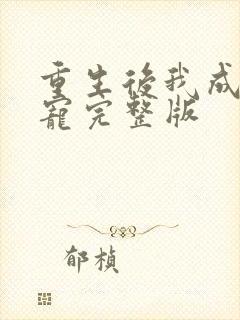 重生後我成
寵完整版
郁楨